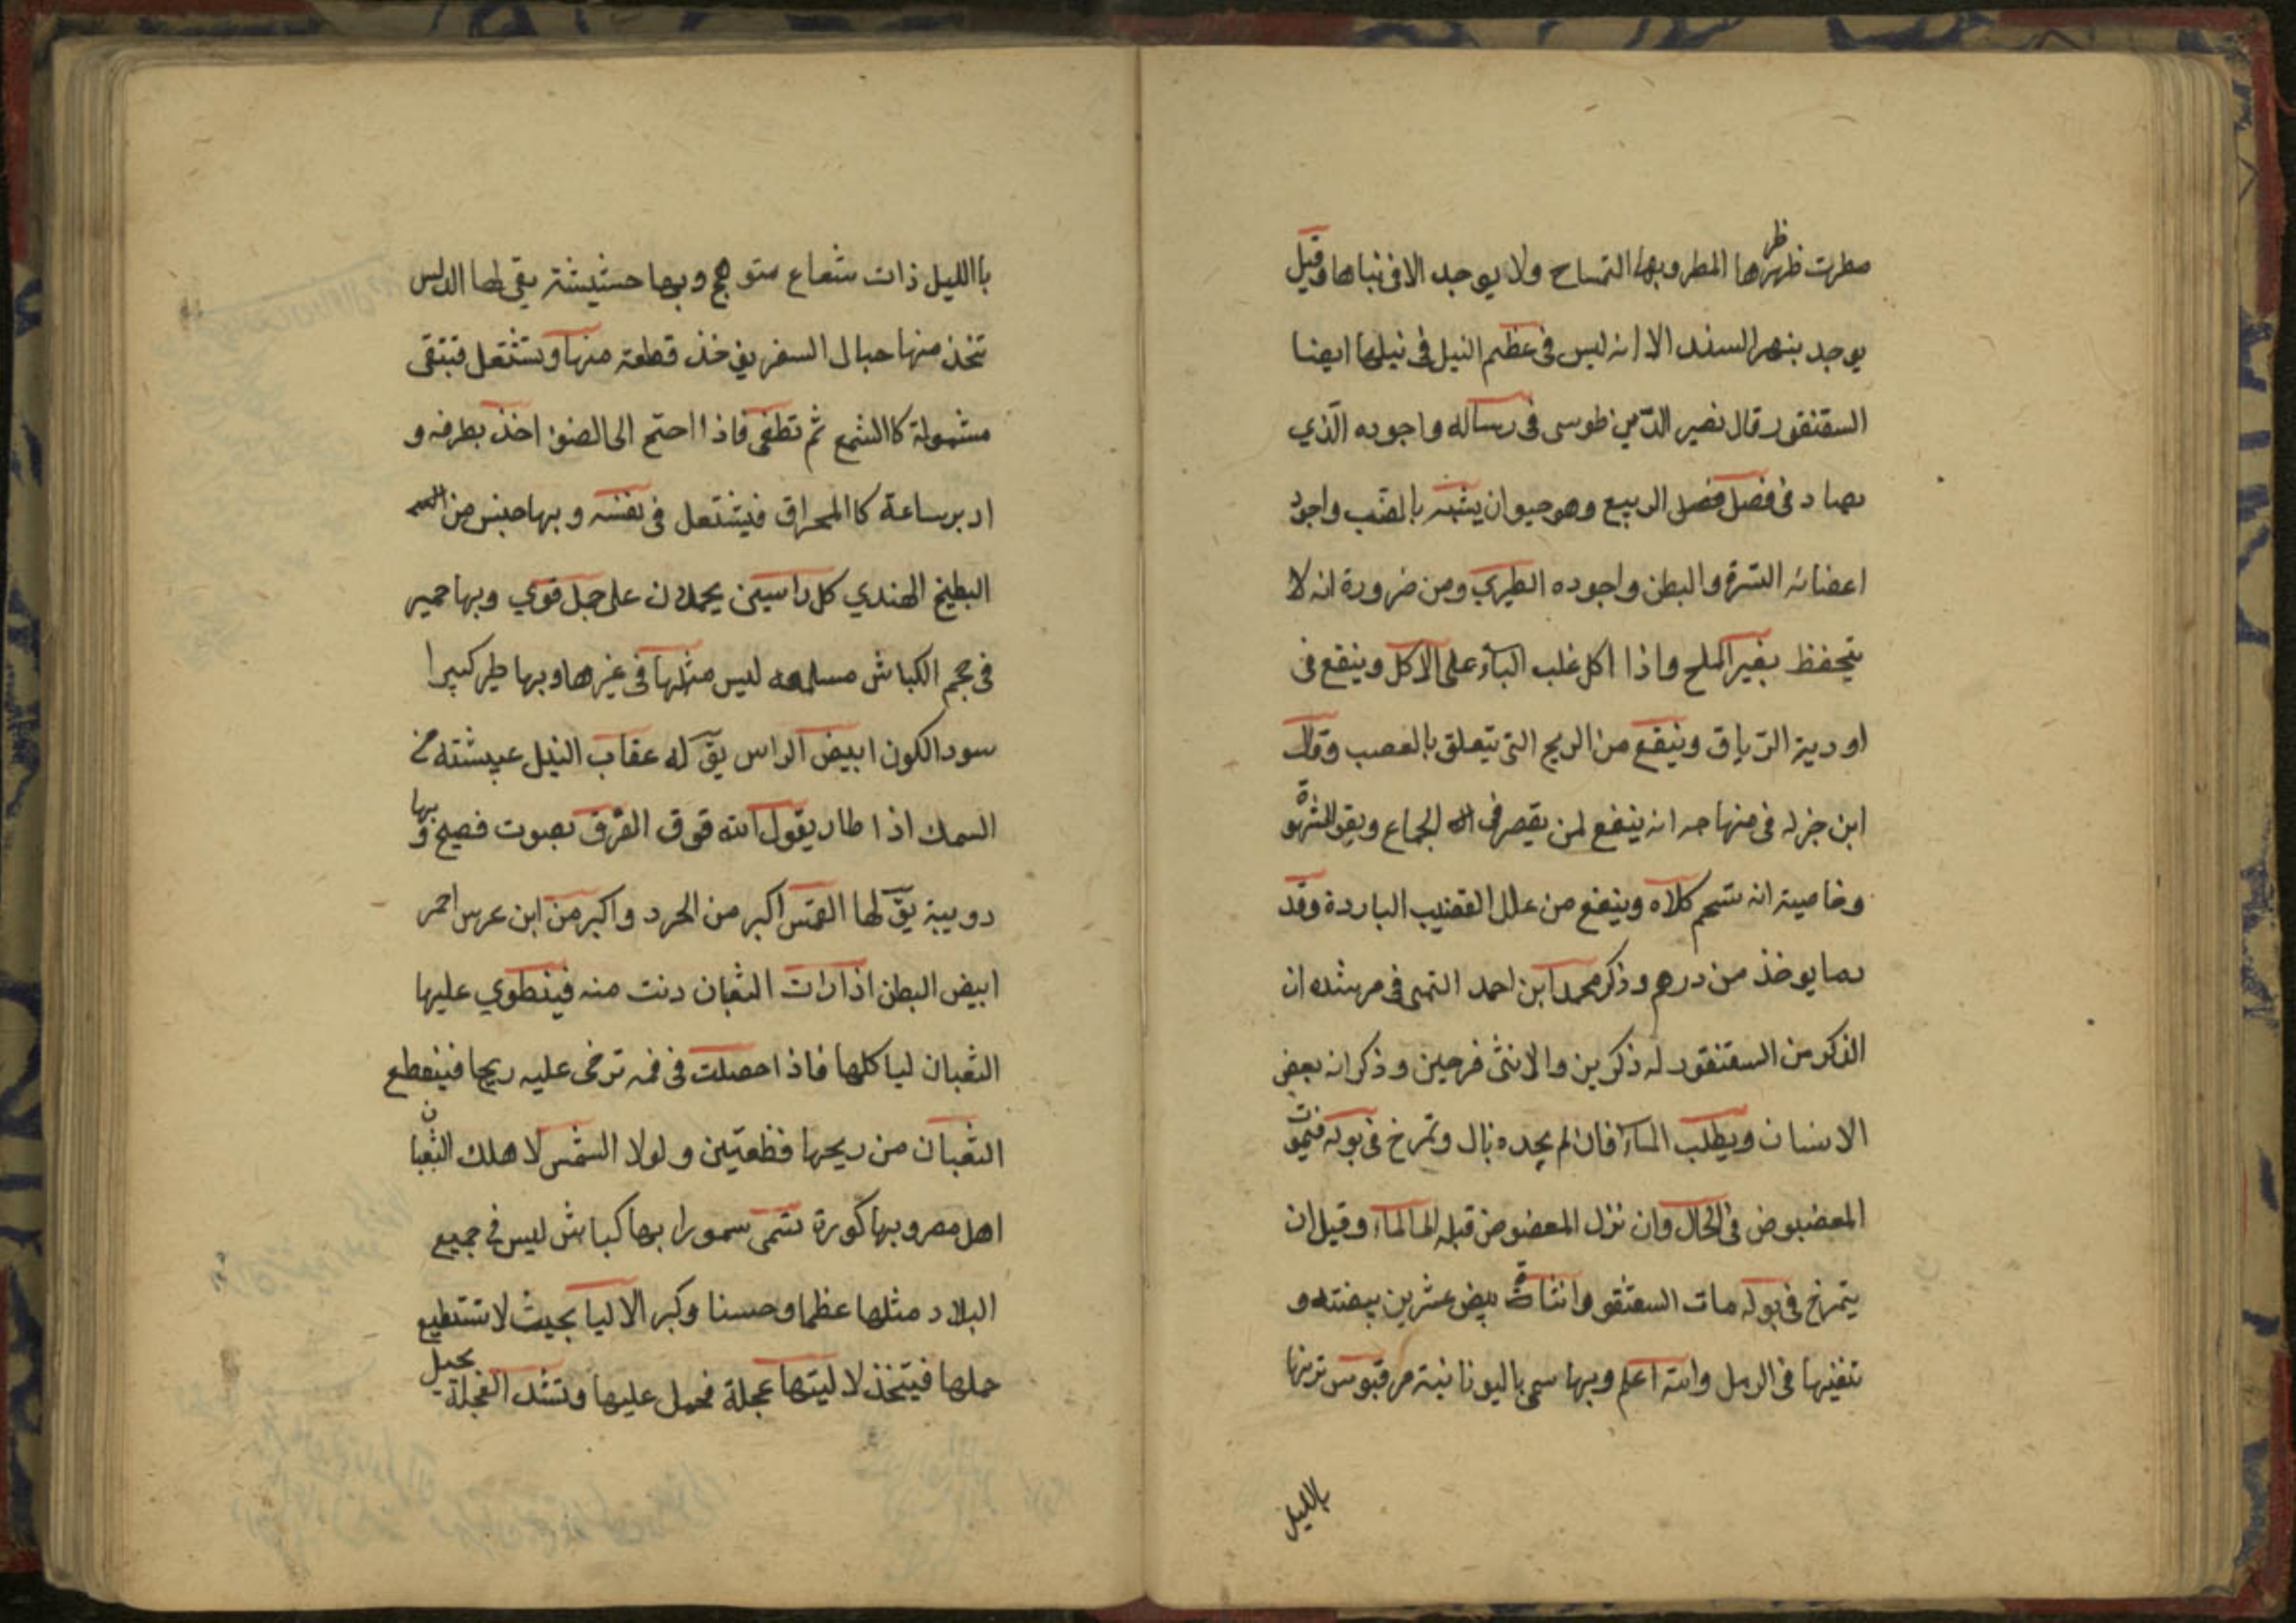 مطرت ظهرها المطر وبها التمساح ولا يوجد الا فى نباها وقيل
يوجد بنهر السند الا انه ليس فى عظم النيل فى نيلها ايضا
السقنقور قال نصير الدّين طوسى فى رساله واجوده الّذي
يصاد فى فصل فصل الربيع وهو حيوان يشبه بالضب واجود
اعضائه السرة والبطن واجوده الطيري ومن ضرورة انه لا
يتحفظ بغير الملح واذا اكل غلب الباء على الاكل وينقع فى
اودية الترياق وينفع من الريح التى يتعلق بالعصب وقال
ابن جزله فى منهاجه انه ينفع لمن يقصر فى الجماع ويقو الشهوة
وخاصيته ان شحم كلاه وينفع من علل القضيب الباردة وقد
بما يوخذ من درهم وذكر محمد ابن احمد التمى فى مرشده ان
الذكر من السقنقور له ذكرين والانثى فرجين وذكر انه يعض
الانسان ويطلب الماء فان لم يجده بال وتمرخ فى بوله فيموت
المعضوض فى الحال وان نزل المعضوض قبله الماء وقيل ان
يتمرخ فى بوله مات السقنقو وانثاة بيض عشرين بيضته و
تدفنها فى الرمل والله اعلم وبها سمى باليونانية مرقبوس ترنها
بالليل
باالليل ذات شعاع متوهج وبها حشيشة يقى لها الدلس
تتخذ منها حبال السفر يوخذ قطعة منها وتشتعل فتبقى
مشمولة كاالشمع ثم تطفى فاذا احتم الى الضوء اخذ بطرفه و
ادبر ساعة كا المحراق فيشتعل فى نفسه وبها جنس من
البطيخ الهندي كل راسين يحملان على جمل قوي وبها حمير
فى حجم الكباش مسلمه ليس مثلها فى غيرها وبها طير كبيرا
سود الكون ابيض الراس يقَ له عقاب النيل عيشته من
السمك اذا طار يقول الله فوق الفَوق بصوت فصيح وبها
دويبة يقَ لها القس اكبر من الجرد واكبر من ابن عرس احمر
ابيض البطن اذا رات الثعبان دنت منه فينطوي عليها
الثعبان لياكلها فاذا حصلت فى فمه ترخى عليه ريحا فينقطع
الثعبان من ريحها قطعتين ولولا الشمس لا هلك الثعبان
اهل مصر وبها كورة تسمى سمورا بها كباش ليس فى جميع
البلاد مثلها عظما وحسنا وكبر الاليا بحيث لا تستطيع
حملها فيتخذ لاليتها عجلة فحمل عليها وتشد العجلة بحبل